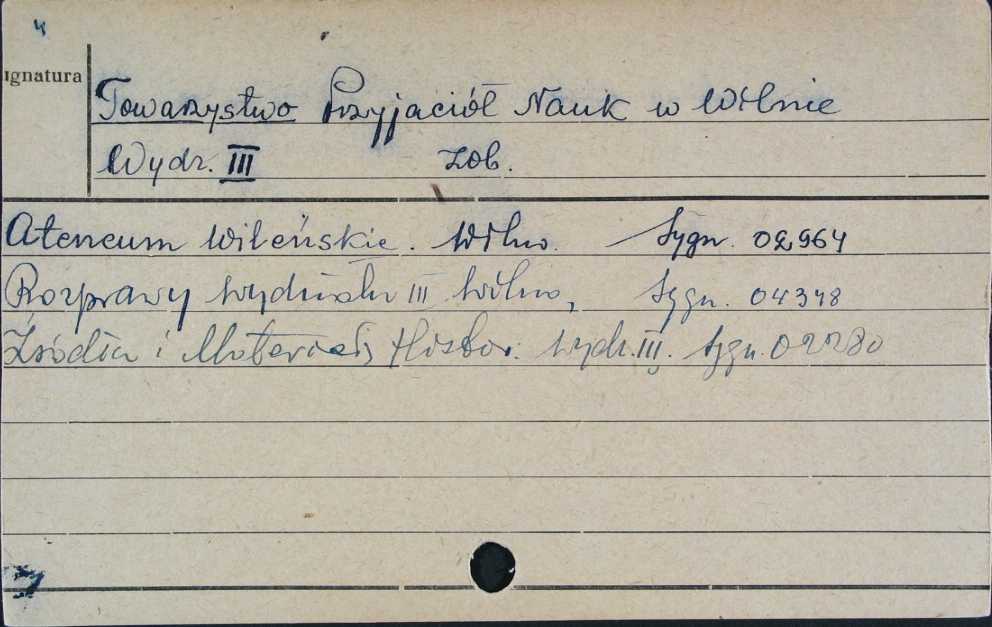 4
ignatura
Towarzystwo Przyjaciół Nauk w Wilnie
Wydz. III zob.
Ateneum Wileńskie. Wilno. Sygn. 02964
Rozprawy Wydziału III Wilno, Sygn. 04348
Źródła i Materiały Histor. Wydz. III. Sygn. 02280